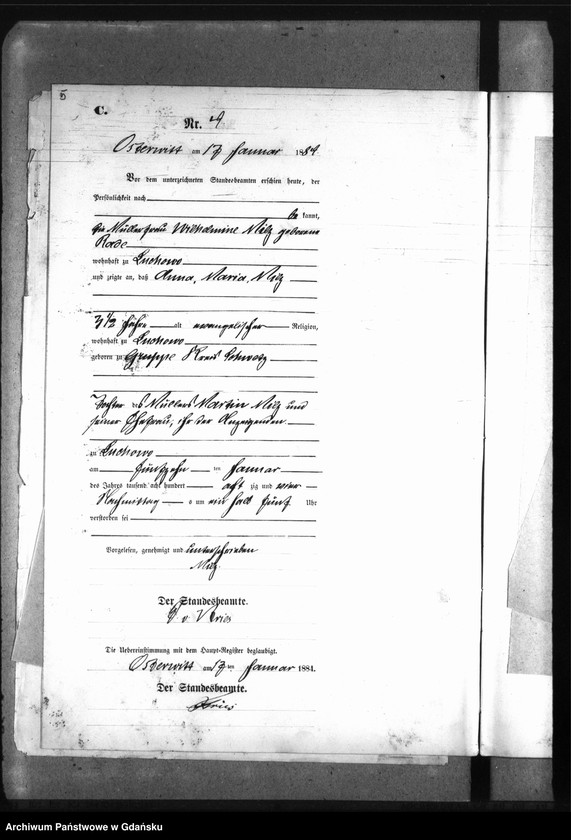 5
C.
Nr. 4
Osterwitt am 17 Januar 1884
Vor dem unterzeichneten Standesbeamten erschien heute, der
Persönlichkeit nach
be kannt,
die Müllerfrau Wilhelmine Milz geborene
Rade
wohnhaft zu Luchowo
und zeigte an, daß Anna, Maria, Milz
3 1/2 Jahre alt evangelischer Religion,
wohnhaft zu Luchowo
geboren zu Gruppe Kreis Schwetz
Tochter des Müllers Martin Milz und
seiner Ehefrau, ihr der Anzeigenden
zu Luchowo
am fünfzehn ten Januar
des Jahrs tausend acht hundert acht zig und vier
Nachmittag s um ein halb fünf Uhr
verstorben sei
Vorgelesen, genehmigt und unterschrieben
Milz
Der Standesbeamte.
v. Kries
Die Uebereinstimmung mit dem Haupt-Register beglaubigt.
Osterwitt am 17 ten Januar 1884.
Der Standesbeamte.
Kries
Archiwum Państwowe w Gdańsku